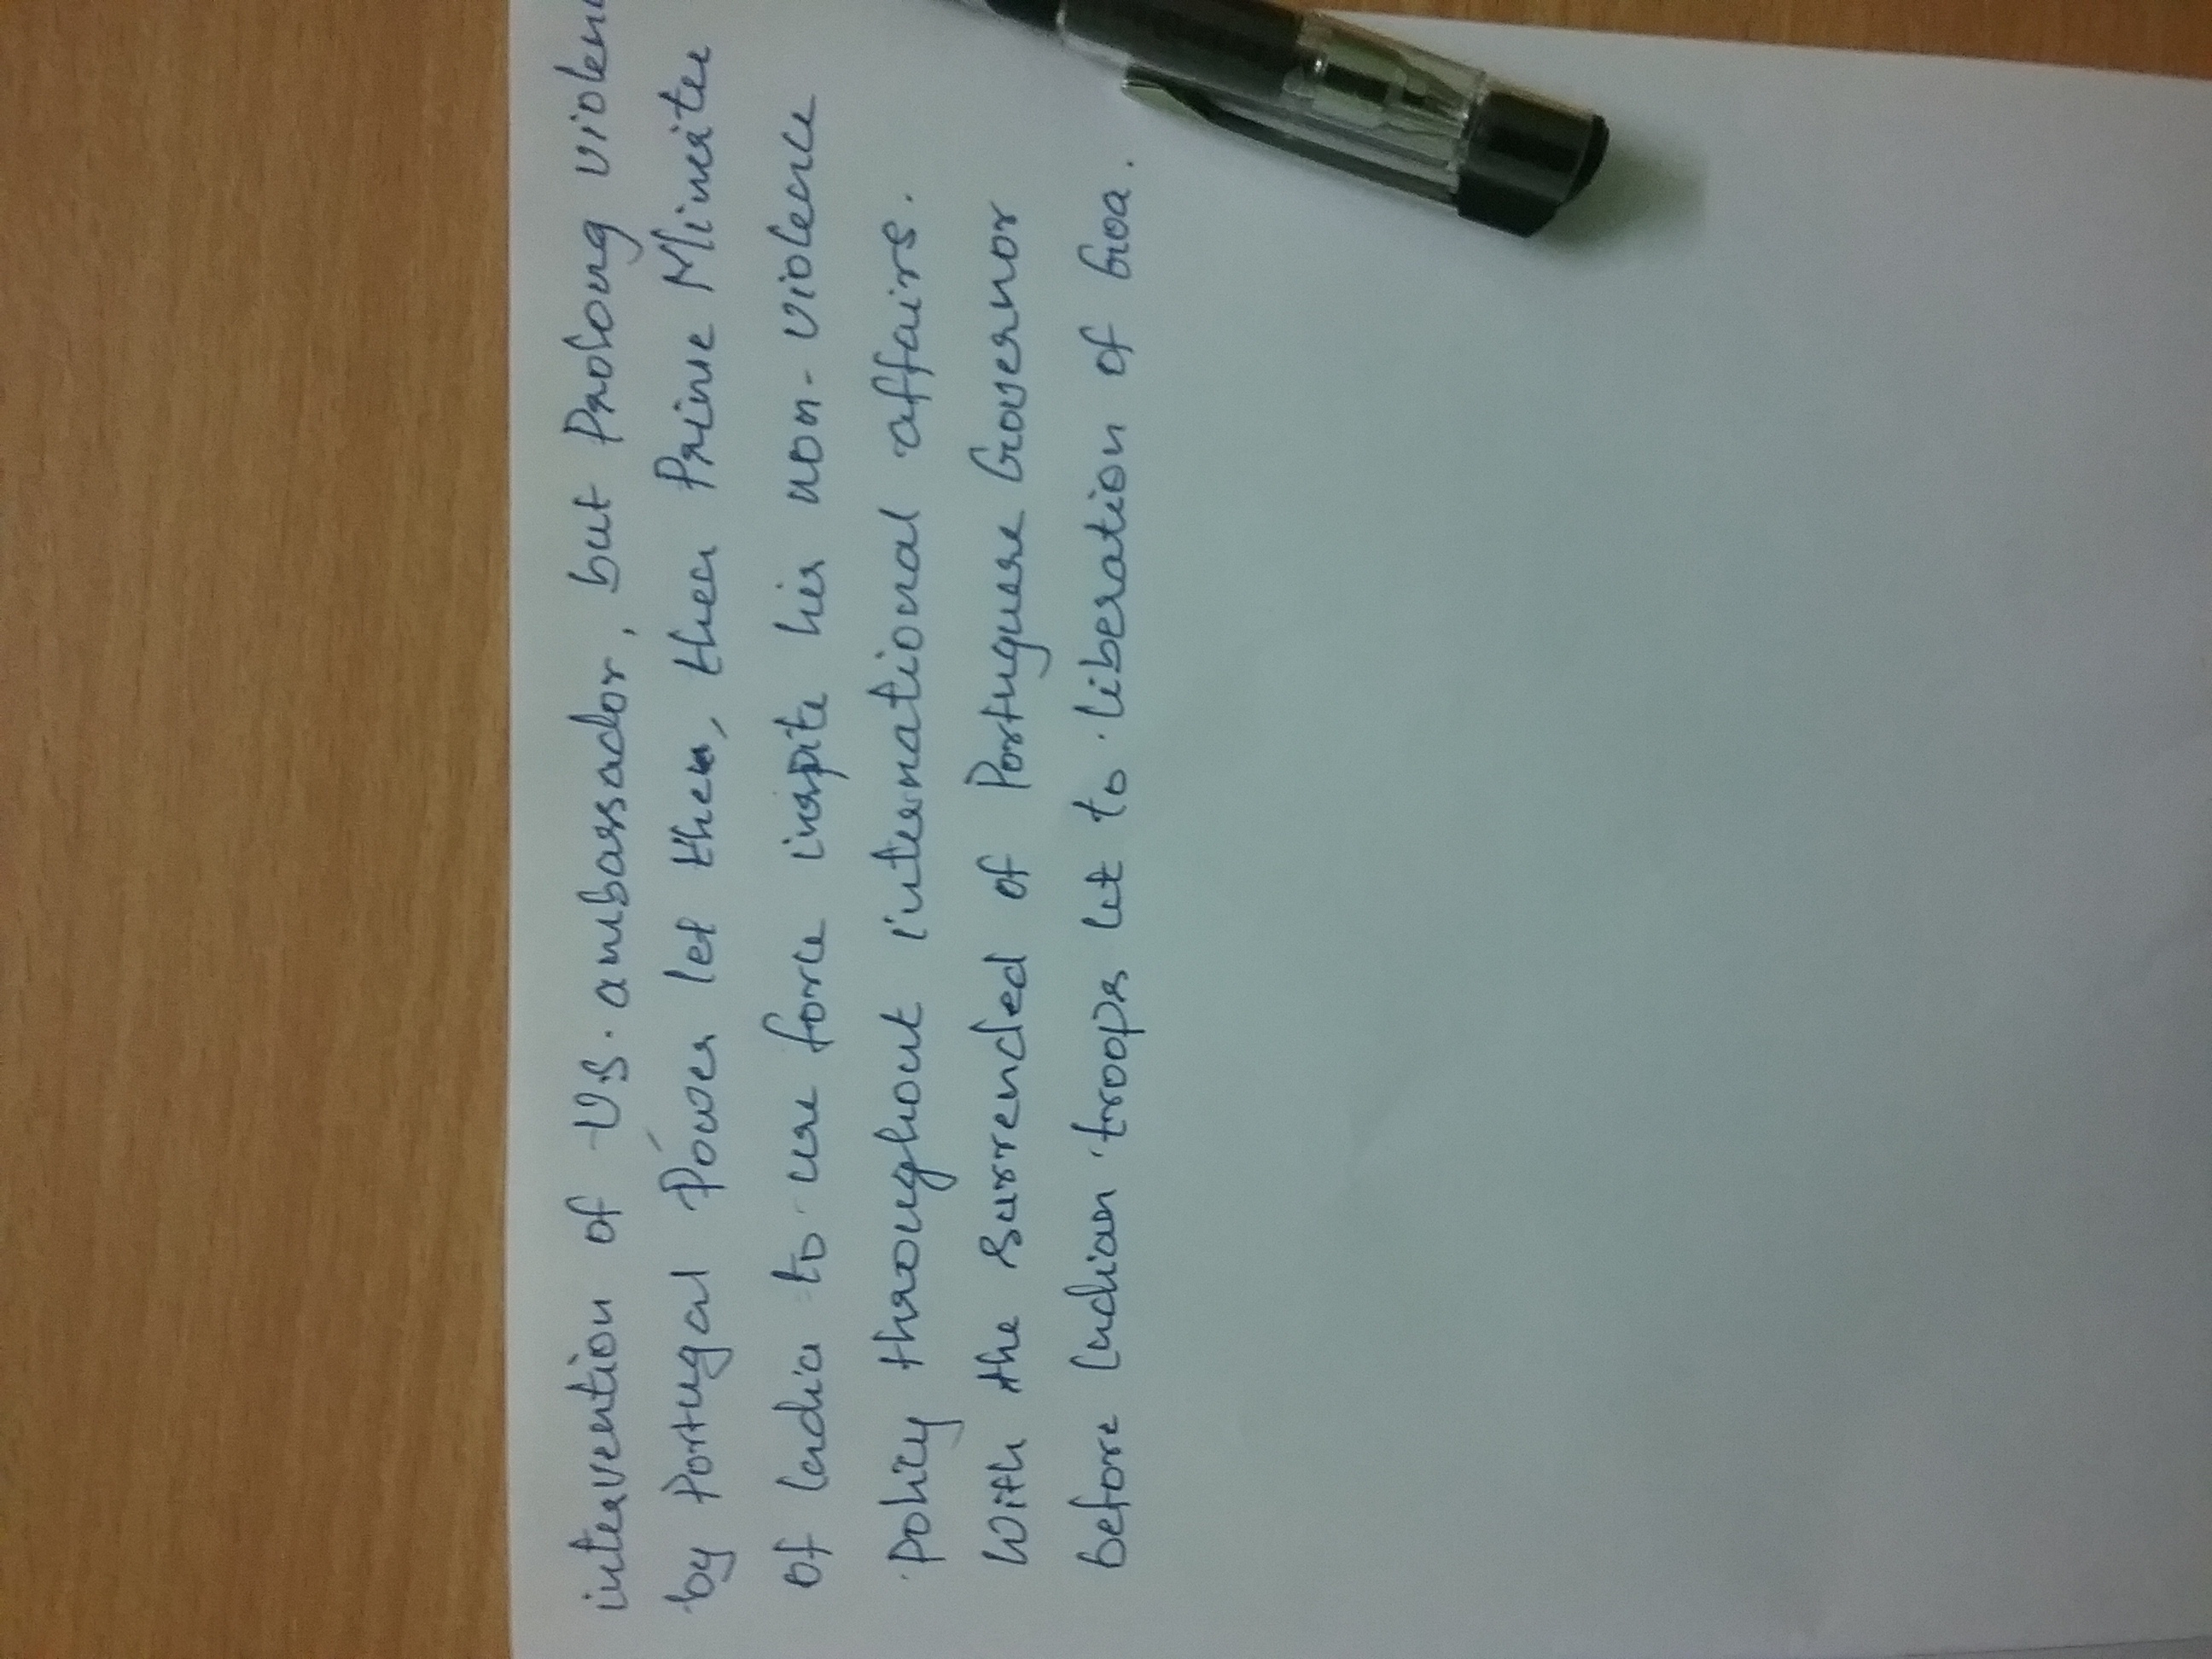 intervention of U.S. ambassador, but Prolong violen
by Portugal Power let them, then Prime Minister
of India to use force inspite his non-violence
Policy throughout international affairs.
With the surrended of Portuguese Governor
before Indian troops let to liberation of Goa.